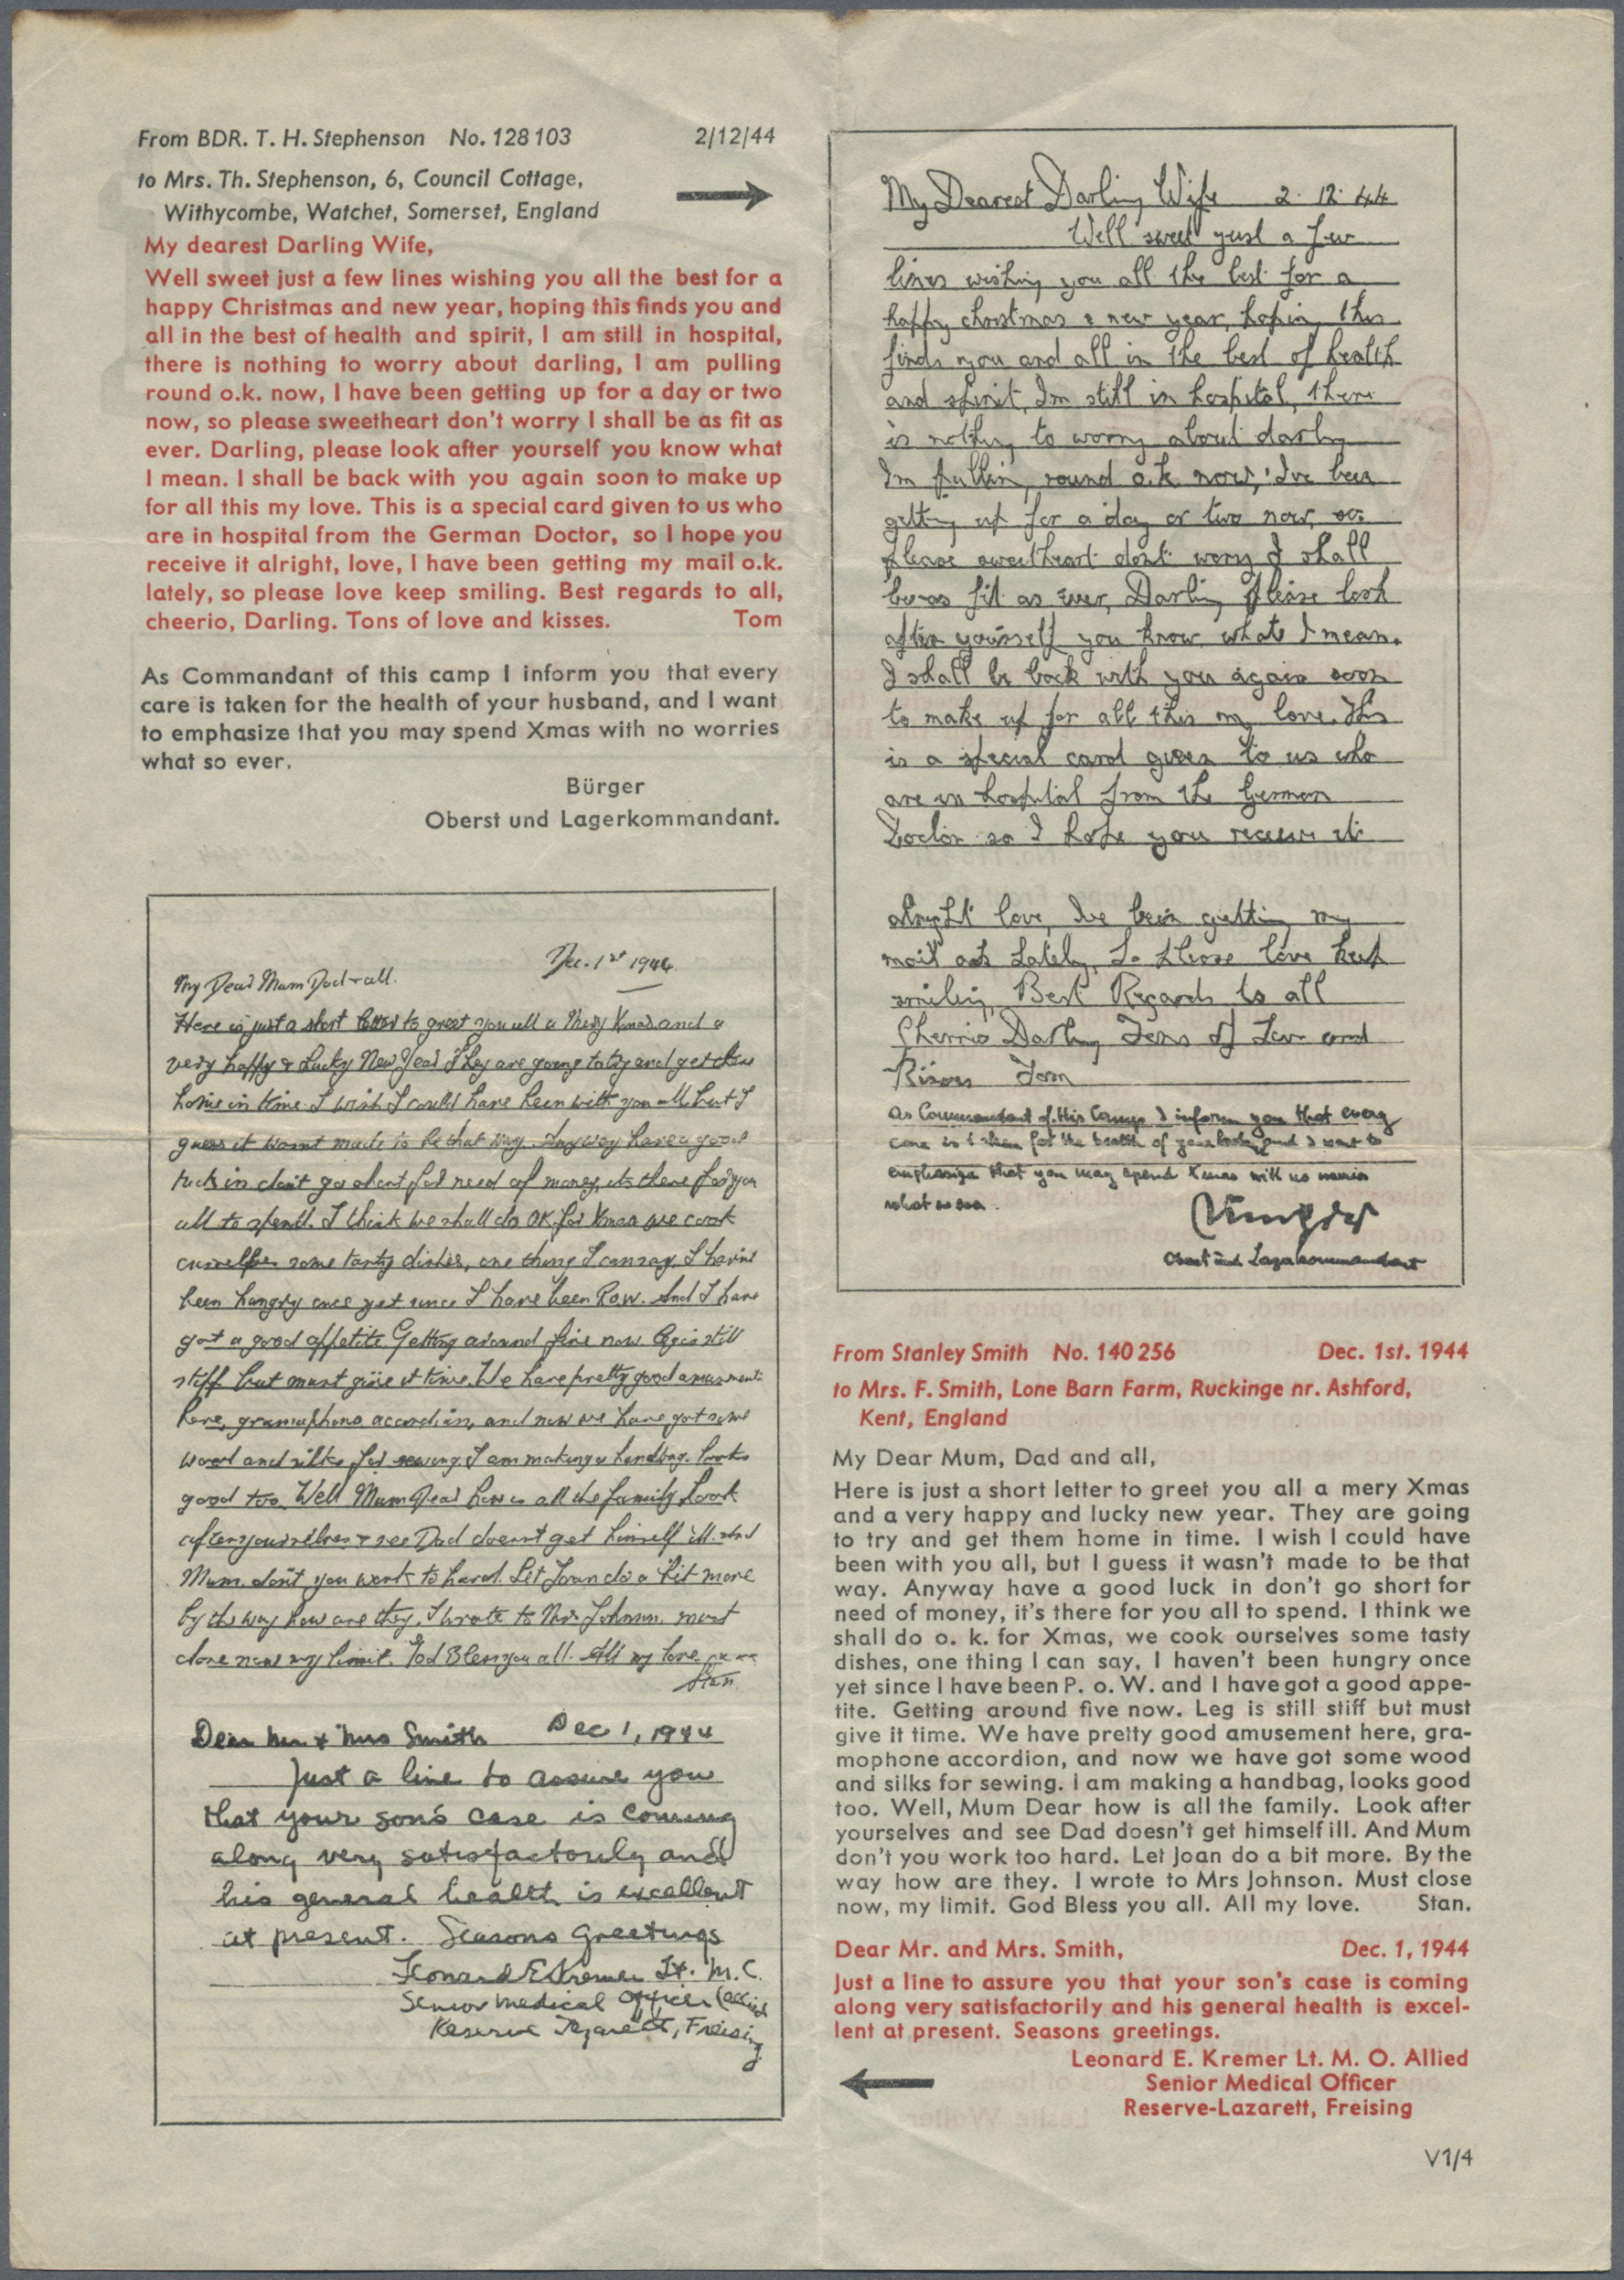 From BDR. T. H. Stephenson No. 128103 2/12/44
to Mrs. Th. Stephenson, 6, Council Cottage,
Withycombe, Watchet, Somerset, England
My dearest Darling Wife,
Well sweet just a few lines wishing you all the best for a
happy Christmas and new year, hoping this finds you and
all in the best of health and spirit, I am still in hospital,
there is nothing to worry about darling, I am pulling
round o.k. now, I have been getting up for a day or two
now, so please sweetheart don't worry I shall be as fit as
ever. Darling, please look after yourself you know what
I mean. I shall be back with you again soon to make up
for all this my love. This is a special card given to us who
are in hospital from the German Doctor, so I hope you
receive it alright, love, I have been getting my mail o.k.
lately, so please love keep smiling. Best regards to all,
cheerio, Darling. Tons of love and kisses. Tom
As Commandant of this camp I inform you that every
care is taken for the health of your husband, and I want
to emphasize that you may spend Xmas with no worries
what so ever.
Bürger
Oberst und Lagerkommandant.
My Dearest Darling Wife 2. 12. 44
Well sweet just a few
lines wishing you all the best for a
happy christmas & new year, hoping this
finds you and all in the best of health
and spirit, Im still in hospital, there
is nothing to worry about darling
Im pulling round o.k. now, I've been
getting up for a day or two now, so
please sweetheart dont worry I shall
be as fit as ever, Darling please look
after yourself you know what I mean.
I shall be back with you again soon
to make up for all this my love. This
is a special card given to us who
are in hospital from the German
Doctor so I hope you receive it
alright love, I've been getting my
mail ok lately, so please love keep
smiling, Best Regards to all
Cherrio Darling Tons of Love and
Kisses Tom
As Commandant of this Camp I inform you that every
care is taken for the health of your husband and I want to
emphasize that you may spend Xmas with no worries
what so ever.
Oberst und Lagerkommandant
Dec. 1st 1944
My Dear Mum Dad & all.
Here is just a short letter to greet you all a Mery Xmas and a
very happy & Lucky New Year They are going to try and get them
home in time. I wish I could have been with you all but I
guess it wasnt made to be that way. Anyway have a good
tuck in don't go short for need of money, its there for you
all to spend. I think we shall do OK for Xmas we cook
ourselves some tasty dishes, one thing I can say, I havint
been hungry once yet since I have been P.o.W. And I have
got a good appetite. Getting around fine now leg is still
stiff but must give it time. We have pretty good amusments
here, gramaphone accordian, and now we have got some
wool and silks for sewing. I am making a handbag. looks
good too. Well Mum Dear how is all the family Look
after yourselves & see Dad doesnt get himself ill. And
Mum. don't you work to hard. Let Joan do a bit more
by the way how are they. I wrote to Mrs Johnson. must
close now my limit. God Bless you all. All my love xxxx
Stan
Dear Mr & Mrs Smith Dec 1, 1944
Just a line to assure you
that your son's case is coming
along very satisfactorily and
his general health is excellent
at present. Seasons greetings
Leonard E Kremer Lt. M.C.
Senior Medical Officer (Allied
Reserve Lazarett, Freising
From Stanley Smith No. 140256 Dec. 1st. 1944
to Mrs. F. Smith, Lone Barn Farm, Ruckinge nr. Ashford,
Kent, England
My Dear Mum, Dad and all,
Here is just a short letter to greet you all a mery Xmas
and a very happy and lucky new year. They are going
to try and get them home in time. I wish I could have
been with you all, but I guess it wasn't made to be that
way. Anyway have a good luck in don't go short for
need of money, it's there for you all to spend. I think we
shall do o. k. for Xmas, we cook ourselves some tasty
dishes, one thing I can say, I haven't been hungry once
yet since I have been P. o. W. and I have got a good appe-
tite. Getting around five now. Leg is still stiff but must
give it time. We have pretty good amusement here, gra-
mophone accordion, and now we have got some wood
and silks for sewing. I am making a handbag, looks good
too. Well, Mum Dear how is all the family. Look after
yourselves and see Dad doesn't get himself ill. And Mum
don't you work too hard. Let Joan do a bit more. By the
way how are they. I wrote to Mrs Johnson. Must close
now, my limit. God Bless you all. All my love. Stan.
Dear Mr. and Mrs. Smith, Dec. 1, 1944
Just a line to assure you that your son's case is coming
along very satisfactorily and his general health is excel-
lent at present. Seasons greetings.
Leonard E. Kremer Lt. M. O. Allied
Senior Medical Officer
Reserve-Lazarett, Freising
V1/4